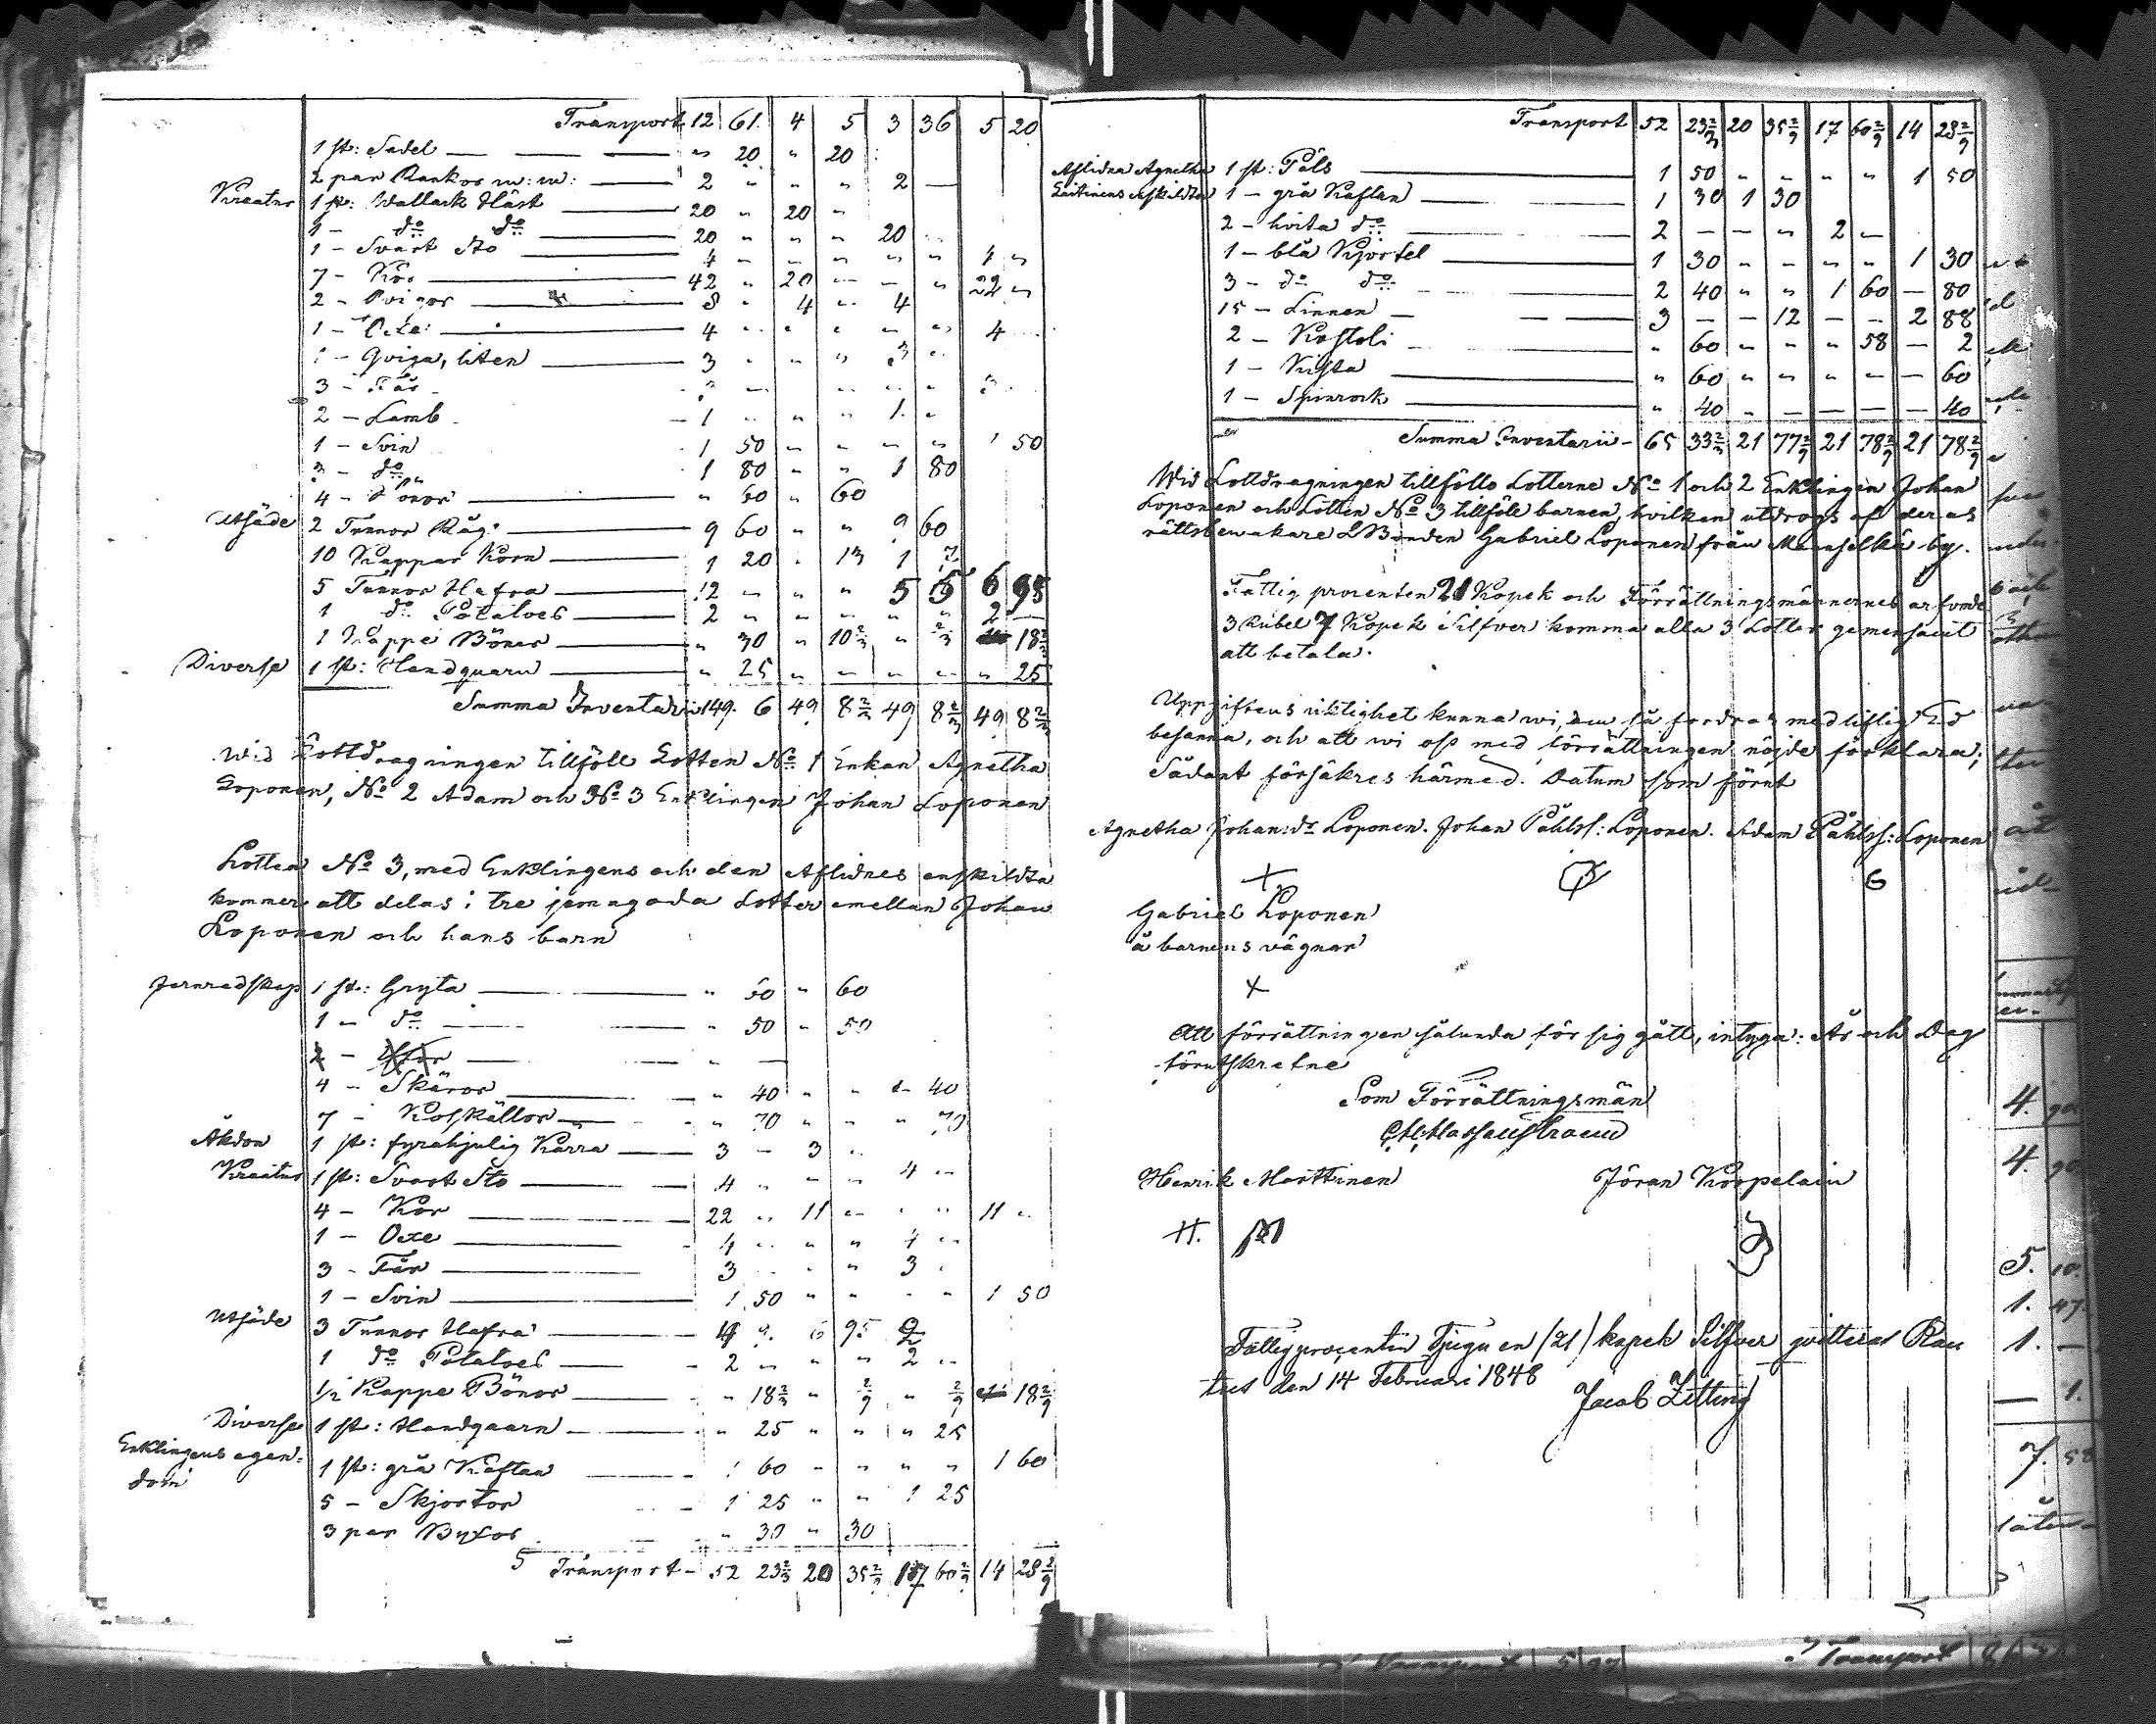 Transport 12 61. 4 5 3 36 5 20
1 st: Sadel — — — " 20 " 20
2 par Rankor m: m: — 2 " " " 2 —
Kreatur 1 st: Wallack Häst — 20 " 20 "
1 — do do — 20 " " " 20
1 — Svart Sto — 4 " " " " " 4 "
7 — Kor — 42 " 20 — — " 22 "
2 — Qvigor — 8 " 4 " 4
1 — Oxe — 4 " " " " " 4
1 — Qviga, liten — 3 " " " 3 "
3 — Får
2 — Lamb — 1 " " " 1 "
1 — Svin 1 50 " " " " 1 50
3 — do 1 80 " " 1 80
4 — — " 60 " 60
Utsäde 2 Tunnor Råg — 9 60 " " 9 60
10 Kappar Korn — 1 20 " 13 1 7
5 Tunnor Hafra — 12 — " " 5 5 6 95
1 do Potatoes — 2 " " " " " 2 —
1 Kappe Bönor — " 30 " 10 2/3 " 2/3 18 2/3
Diverse 1 st: Handquarn — " 25 " — — — " 25
Summa Inventarii 149. 6 49 8 2/3 49 8 2/3 49 8 2/3
Wid Lottdragningen tillföll Lotten No 1 Enkan Agnetha
Loponen, No 2 Adam och No 3 Enklingen Johan Loponen
Lotten No 3, med Enklingens och den Aflidnes enskildta
kommer att delas i tre jemngoda Lotter emellan Johan
Loponen och hans barn
Jernredskap 1 st: Gryta — " 60 " 60
1 — do — " 50 " 50
2 — — " —
4 — Skäror — " 40 " " " 40
7 — Koskällor — " 70 " " " 70
Åkdon 1 st: fyrahjulig Kärra — 3 — 3 "
Kreatur 1 st: Svart Sto — 4 " " " 4 "
4 — Kor — 22 " 11 " " " 11 "
1 — Oxe — 4 " " " 4 "
3 — Får — 3 " " " 3 "
1 — Svin — 1 50 " " " " 1 50
Utsäde 3 Tunnor Hafra — 6 95
1 do Potatoes — 2 " " " 2 "
1/2 Kappe Bönor — " 18 2/3 " 2/9 " 2/9 18 2/9
Diverse 1 st: Handquarn — " 25 " " " 25
Enklingens egen-
dom 1 st: grå Kaftan — 1 60 " " " " 1 60
5 — Skjortor — 1 25 " " 1 25
3 par Byxor — " 30 " 30
Transport — 52 23 2/3 20 35 2/9 17 60 2/9 14 28 2/9
Transport 52 23 2/3 20 35 2/9 17 60 2/9 14 28 2/9
Aflidna Agnetha 1 st: Päls — 1 50 " " " " 1 50
Laitinens enskildta 1 — grå Kaftan — 1 30 1 30
2 — hvita do — 2 — — " 2 "
1 — blå Kjortel — 1 30 " " " " 1 30
3 — do do — 2 40 " " 1 60 — 80
15 — Linnen — 3 — — 12 — — 2 88
2 — — " 60 " " " 58 — 2
1 — Kista — " 60 " " " " — 60
1 — Spinrock — " 40 " — — — — 40
Summa Inventarii — 65 33 2/3 21 77 2/9 21 78 2/9 21 78 2/9
Wid Lottdragningen tillföllo Lotterne No 1 och 2 Enklingen Johan
Loponen och Lotten No 3 tillföll barnen, hvilken utdrogs af deras
rättsbevakare LBonden Gabriel Loponen från by.
Fattig procenten 21 Kopek och Förrättningsmännernes arfvode
3 Rubel 7 Kopek Silfver komma alla 3 Lotter gemensamt
att betala.
Uppgiftens riktighet kunna wi, om så fordras med liflig Ed
besanna, och att wi oss med förrättningen nöjde förklara;
Sådant försäkres härmed. Datum som förut
Agnetha Johansdr Loponen. Johan Påhlss: Loponen. Adam Påhlss: Loponen
Gabriel Loponen
å barnens vägnar
Att förrättningen sålunda för sig gått, intyga: År och Dag
förutskrefne
Som Förrättningsmän
Henrik Marttinen Jöran Korpelain
H. M
Fattigprocenten Tjugu en /21/ kopek Silfver qvitteras Rau
tus den 14 Februari 1848
Jacob Zitting